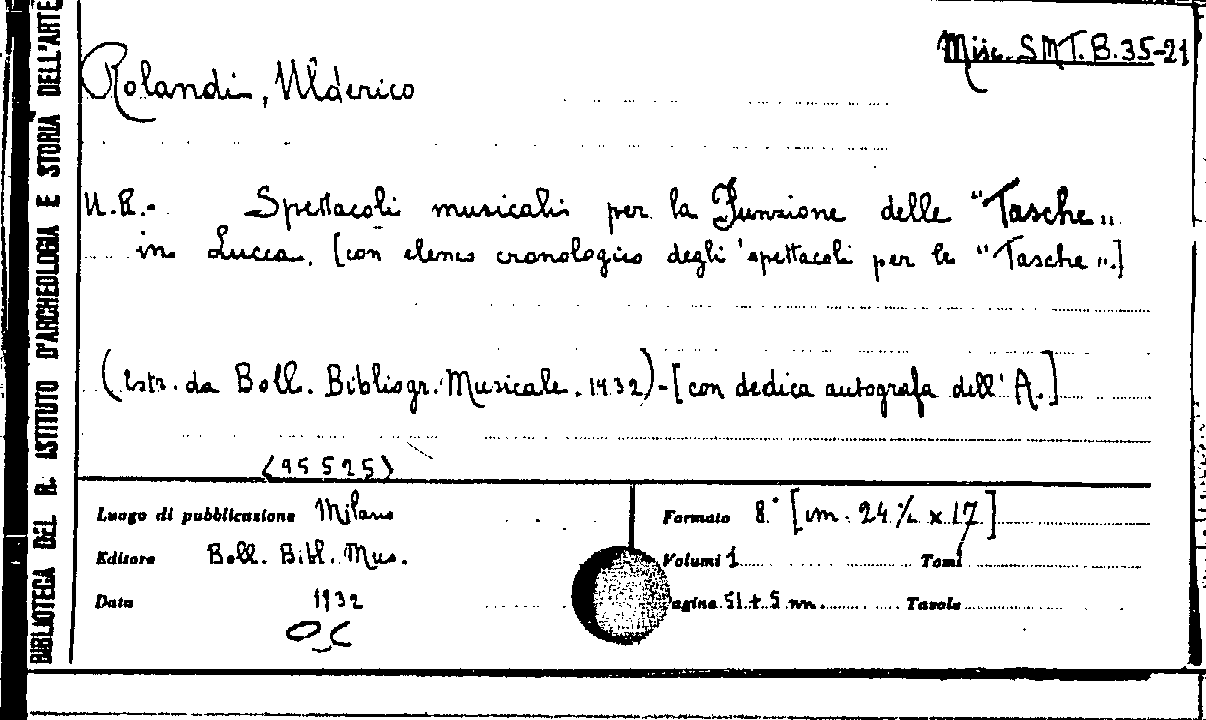 BIBLIOTECA DEL R. ISTITUTO D'ARCHEOLOGIA E STORIA DELL'ARTE
Misc. SMT. B. 35-21
Rolandi, Ulderico
U.R.- Spettacoli musicali per la Funzione delle "Tasche„
in Lucca. [con elenco cronologico degli spettacoli per le "Tasche„.]
(Estr. da Boll. Bibliogr. Musicale. 1932)-[con dedica autografa dell'A.]
(95525)
Luogo di pubblicazione Milano
Formato 8° [cm. 24½ x 17]
Editore Boll. Bibl. Mus.
Volumi 1 Tomi
Data 1932
agine 51 + 5 nn. Tavole